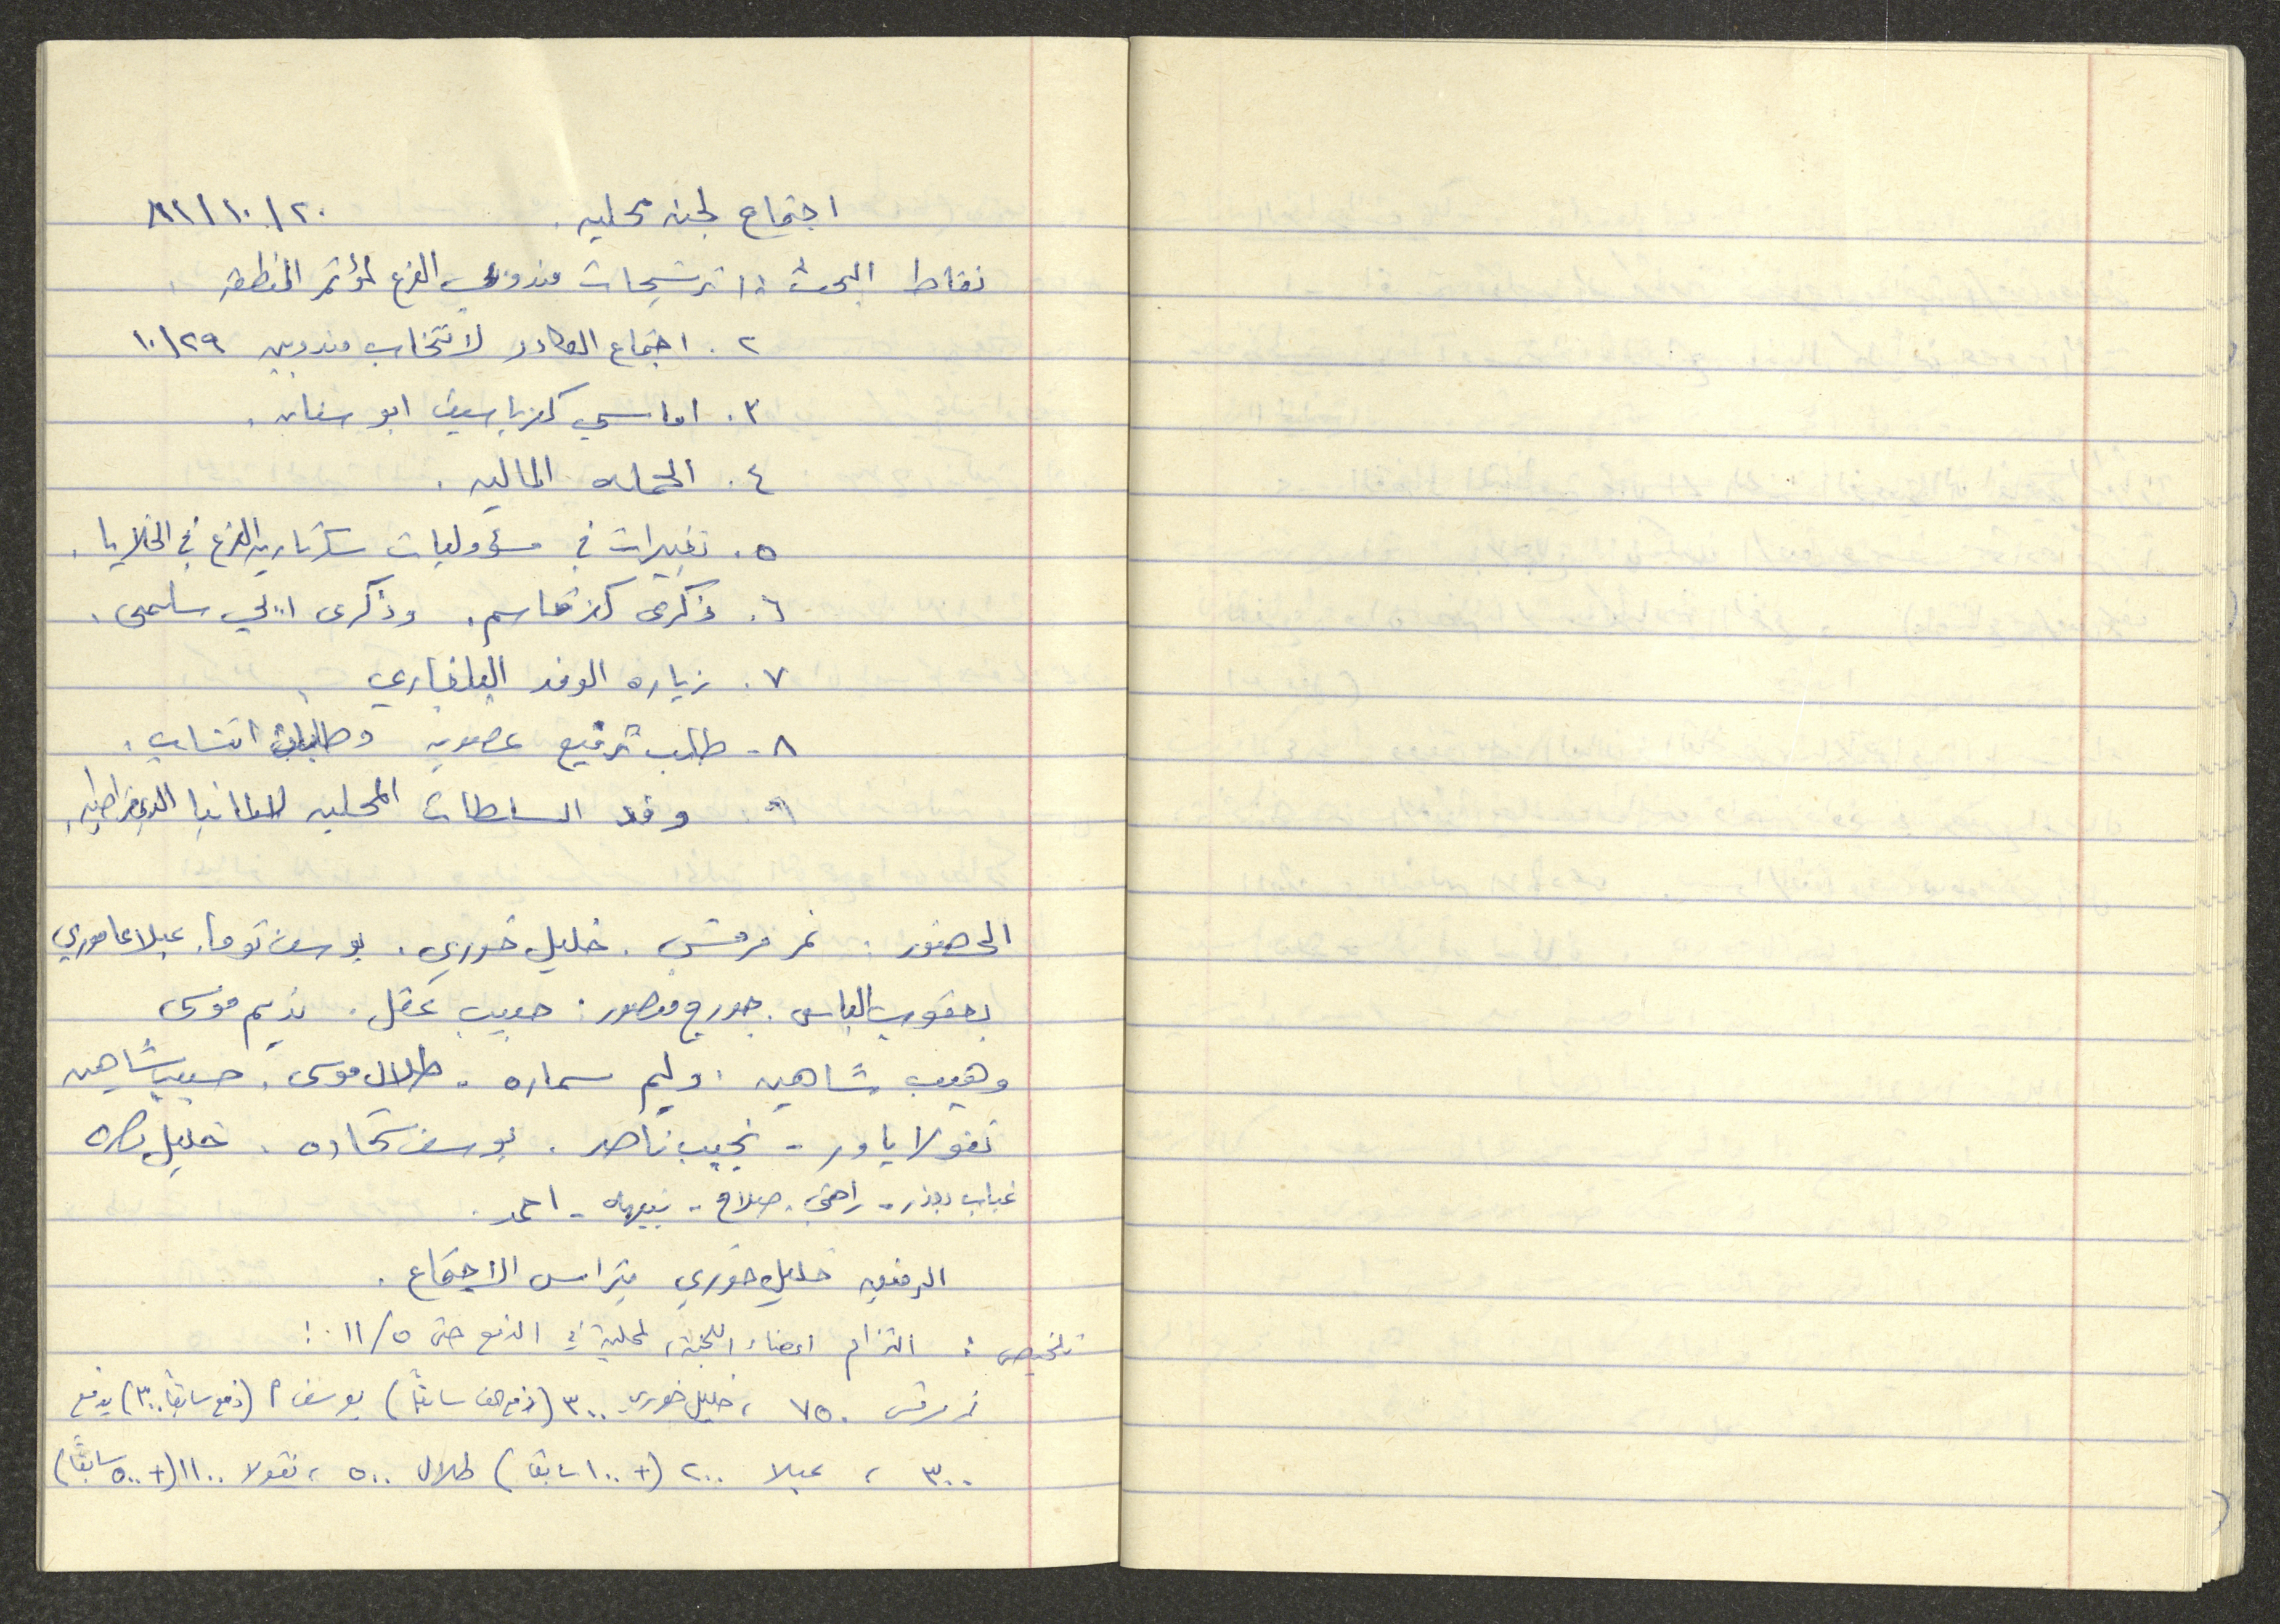 اجتماع لجنه محليه. ٢٠/١٠/٨١
نقاط البحث: ١. ترشيحات مندوبي الفرع لمؤتمر المنطقه
٢. اجتماع الكادر لانتخاب مندوبين ٢٩/١٠
٣. اماسي كفرياسيف ابو سنان.
٤. الحمله الماليه.
٥. تغييرات في مسؤوليات سكرتاريه الفرع في الخلايا.
٦. ذكرى كفرقاسم. وذكرى سلمى.
٧. زياره الوفد البلغاري
٨. طلب ترفيع عضويه وطلبات انتساب.
٩. وفد السلطات المحليه لالمانيا الديمقراطيه.
الحضور: نمر مرقس. خليل خوري. يوسف توما. عبلا عاموري
يعقوب الياس. جورج منصور. حبيب عقل. نديم موسى
وهيب شاهين. وليم سماره. طلال موسى. حسيب شاهين
نقولا ياور - نجيب ناصر. يوسف شحاده. خليل نصره
غياب بعذر - راضي. صلاح - نبيهه - احمد.
الرفيق خليل خوري يتراس الاجتماع.
تلخيص: التزام اعضاء اللجنة المحلية في الدفع حتى ٥/١١:
نمر مرقس ٧٥٠، خليل خوري ٣٠٠ (دفع سابقًا) يوسف (دفع سابقًا ٣٠٠) يدفع
٣٠٠، عبلا ٢٠٠ (+١٠٠ سابقا) طلال ٥٠٠، نقولا ١١٠٠ (+٥٠٠ سابقًا)